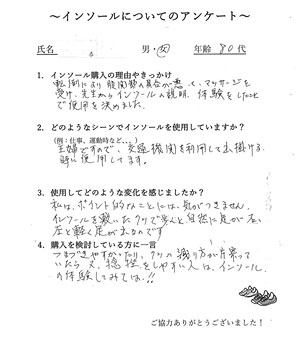 ～インソールについてのアンケート～
氏名 男・女 年齢 80代
1. インソール購入の理由やきっかけ
転倒により股関節の具合が悪くて、マッサージを
受け、先生からインソールの説明、体験をしたことで
で使用を決めました。
2. どのようなシーンでインソールを使用していますか？
（例：仕事、運動時など、、、）
主婦ですので、交通機関を利用して出掛ける
時に使用してます。
3. 使用してどのような変化を感じましたか？
私は、ポイント的なことには、気がつきません。
インソールを敷いたクツで歩くと自然に足が右、
左と軽く足が出るのです
4. 購入を検討している方に一言
つまづきやすかったり、クツの減り方が片寄って
いたら、又、捻挫をしやすい人は、インソール
の体験してみては!!
ご協力ありがとうございました！